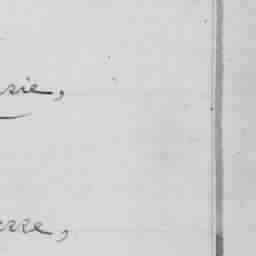 sie,
erre,